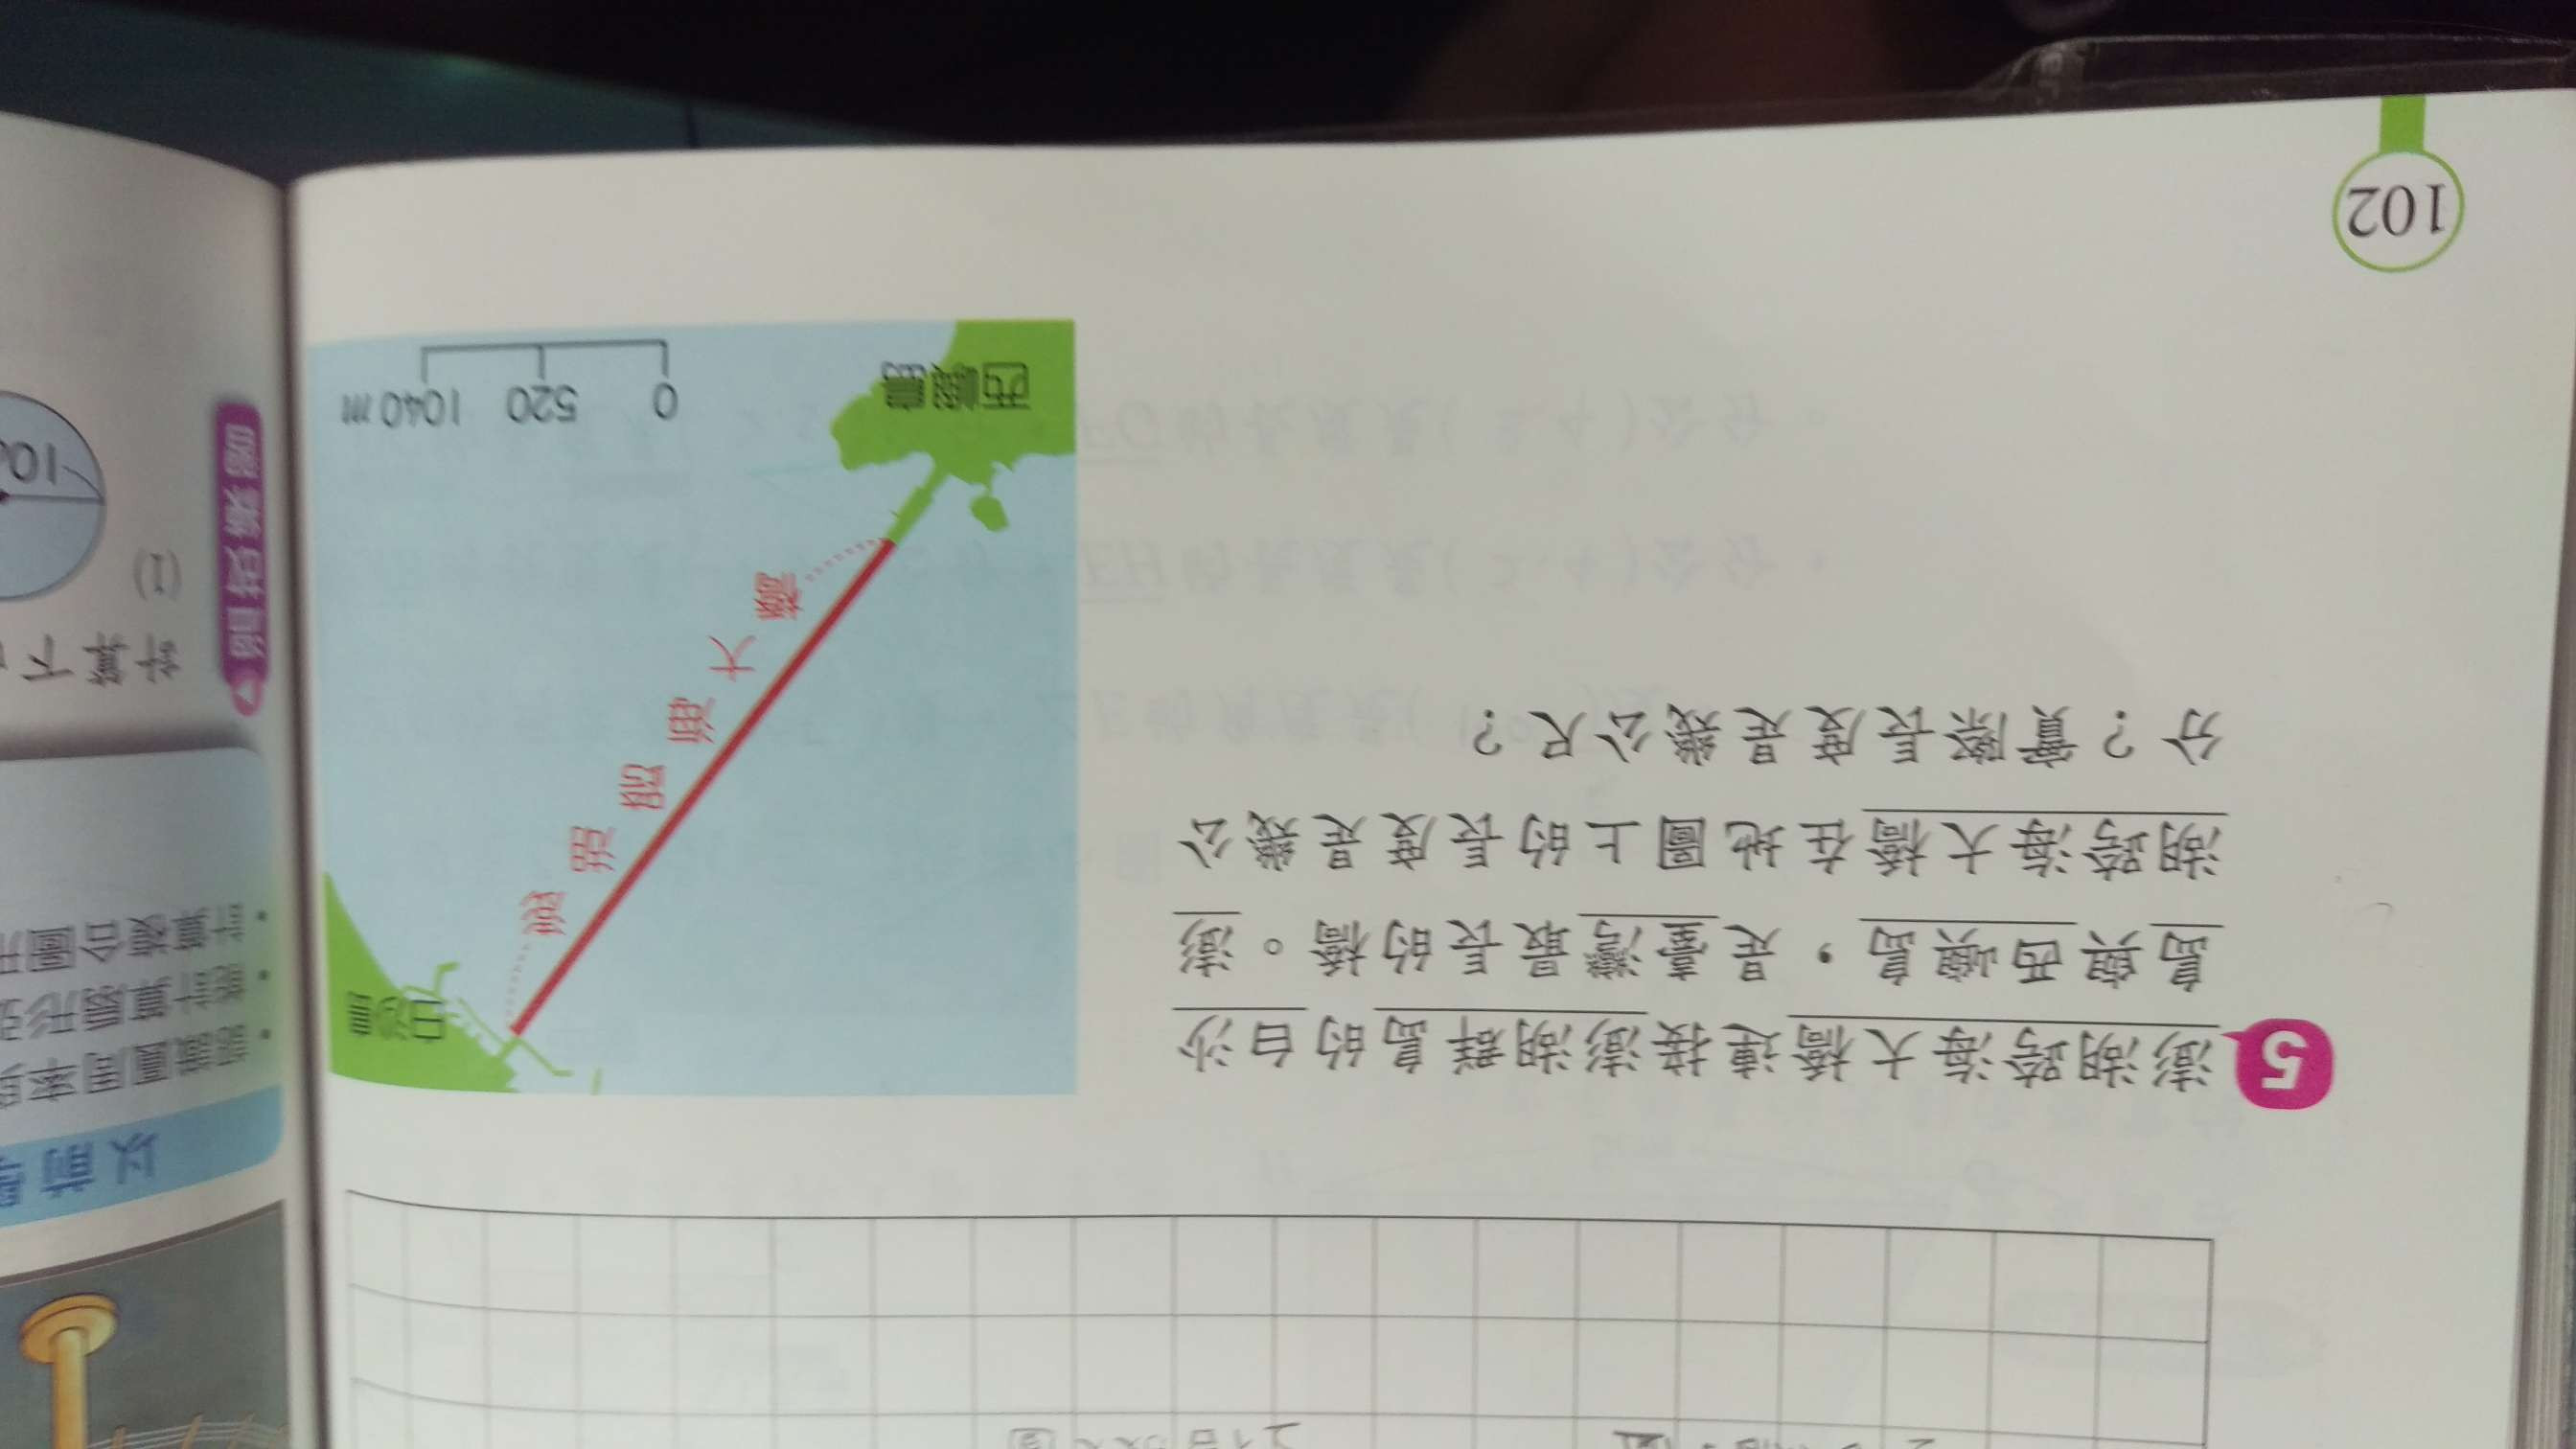 5 澎湖跨海大橋連接澎湖群島的白沙
島與西嶼島,是臺灣最長的橋。澎
湖跨海大橋在地圖上的長度是幾公
分?實際長度是幾公尺?
白沙島
澎湖跨海大橋
西嶼島
0 520 1040 m
102
以前
•認識圓周率
•能計算扇形
•計算複合圖形
暖身練習
計算下
(1)
10